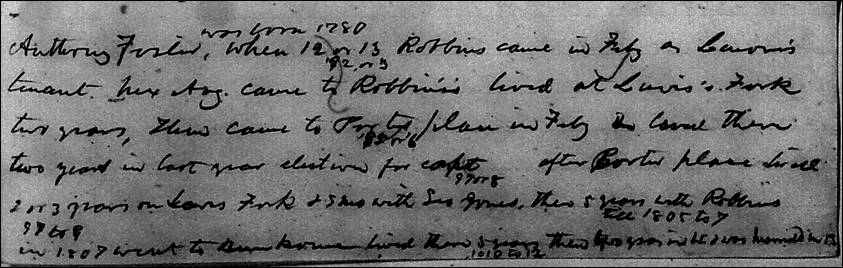 was born 1780
Anthony Foster, when 12 or 13 Robbins came in Feby as
92 or 3
tenant. Nex Aug. came to Robbins's lived at Lewis's Fork
two years, then came to place in Feby & lived there
two years in last year election for capt after Porter place lived
97 or 8
2 or 3 years on Lewis Fork & 5 mos with Geo Jones, then 5 years with Robbins
till 1805 to 7
97 to 9
in 1807 went to lived there 5 years then in was married in
1810 to 12